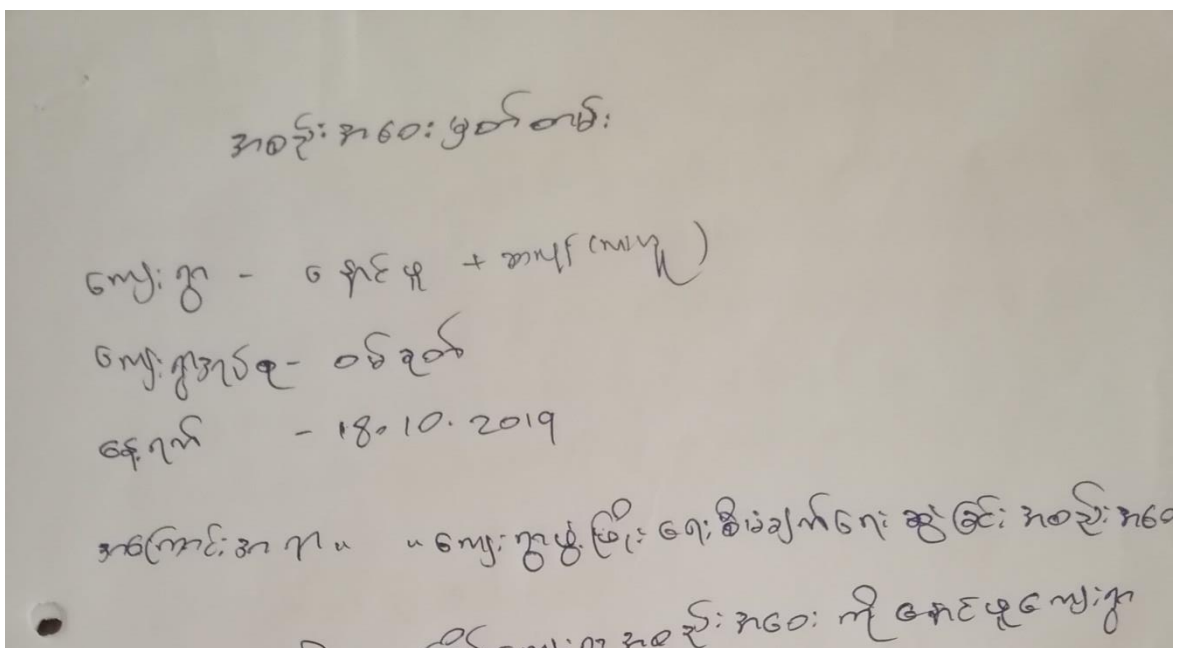 အစည်းအဝေးမှတ်တမ်း
ကျေးရွာ - နောင်ဖူ +
ကျေးရွာအုပ်စု -
နေ့ရက် - 18.10.2019
အကြောင်းအရာ။ ။ ကျေးရွာဖွံ့ဖြိုးရေးစီမံချက်ရေးဆွဲခြင်း အစည်းအဝေ
အစည်းအဝေးကို နောင်ဖူကျေးရွာ